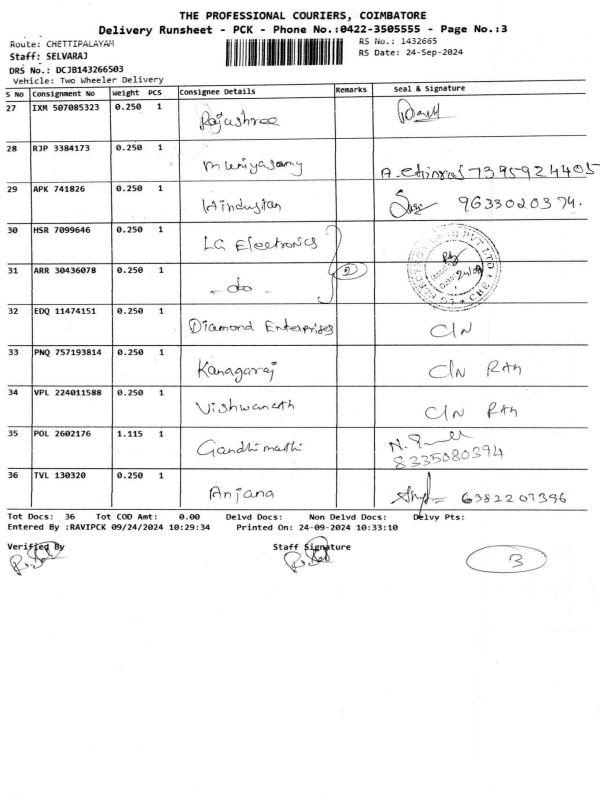 THE PROFESSIONAL COURIERS, COIMBATORE
Delivery Runsheet - PCK - Phone No.:0422-3505555 - Page No.:3
Route: CHETTIPALAYAM RS No.: 1432665
Staff: SELVARAJ RS Date: 24-Sep-2024
DRS No.: DCJB143266503
Vehicle: Two Wheeler Delivery
S No Consignment No Weight PCS Consignee Details Remarks Seal & Signature
27 IXM 507085323 0.250 1 Rajashree
28 RJP 3384173 0.250 1 Muniyasamy 7395924405
29 APK 741826 0.250 1 Hindustan 9633020374.
30 HSR 7099646 0.250 1 LG Electronics
31 ARR 30436078 0.250 1 - do - 2
32 EDQ 11474151 0.250 1 Diamond Enterprises C/N
33 PNQ 757193814 0.250 1 Kanagaraj C/N Rth
34 VPL 224011588 0.250 1 Vishwanath C/N Rth
35 POL 2602176 1.115 1 Gandhimathi 8335080394
36 TVL 130320 0.250 1 Anjana 6382207396
Tot Docs: 36 Tot COD Amt: 0.00 Delvd Docs: Non Delvd Docs: Delvy Pts:
Entered By :RAVIPCK 09/24/2024 10:29:34 Printed On: 24-09-2024 10:33:10
Verified By Staff Signature
3